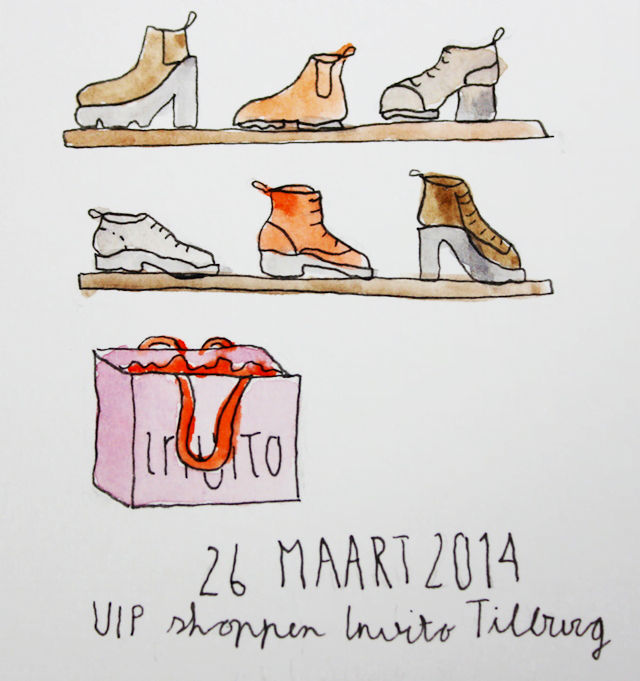 INVITO
26 MAART 2014
VIP shoppen Invito Tilburg